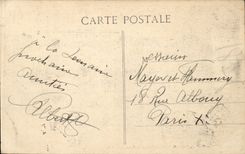 CARTE POSTALE
à la semaine
prochaine
amitiés
Albert
Mayer et
18 Rue Albouy
Paris X